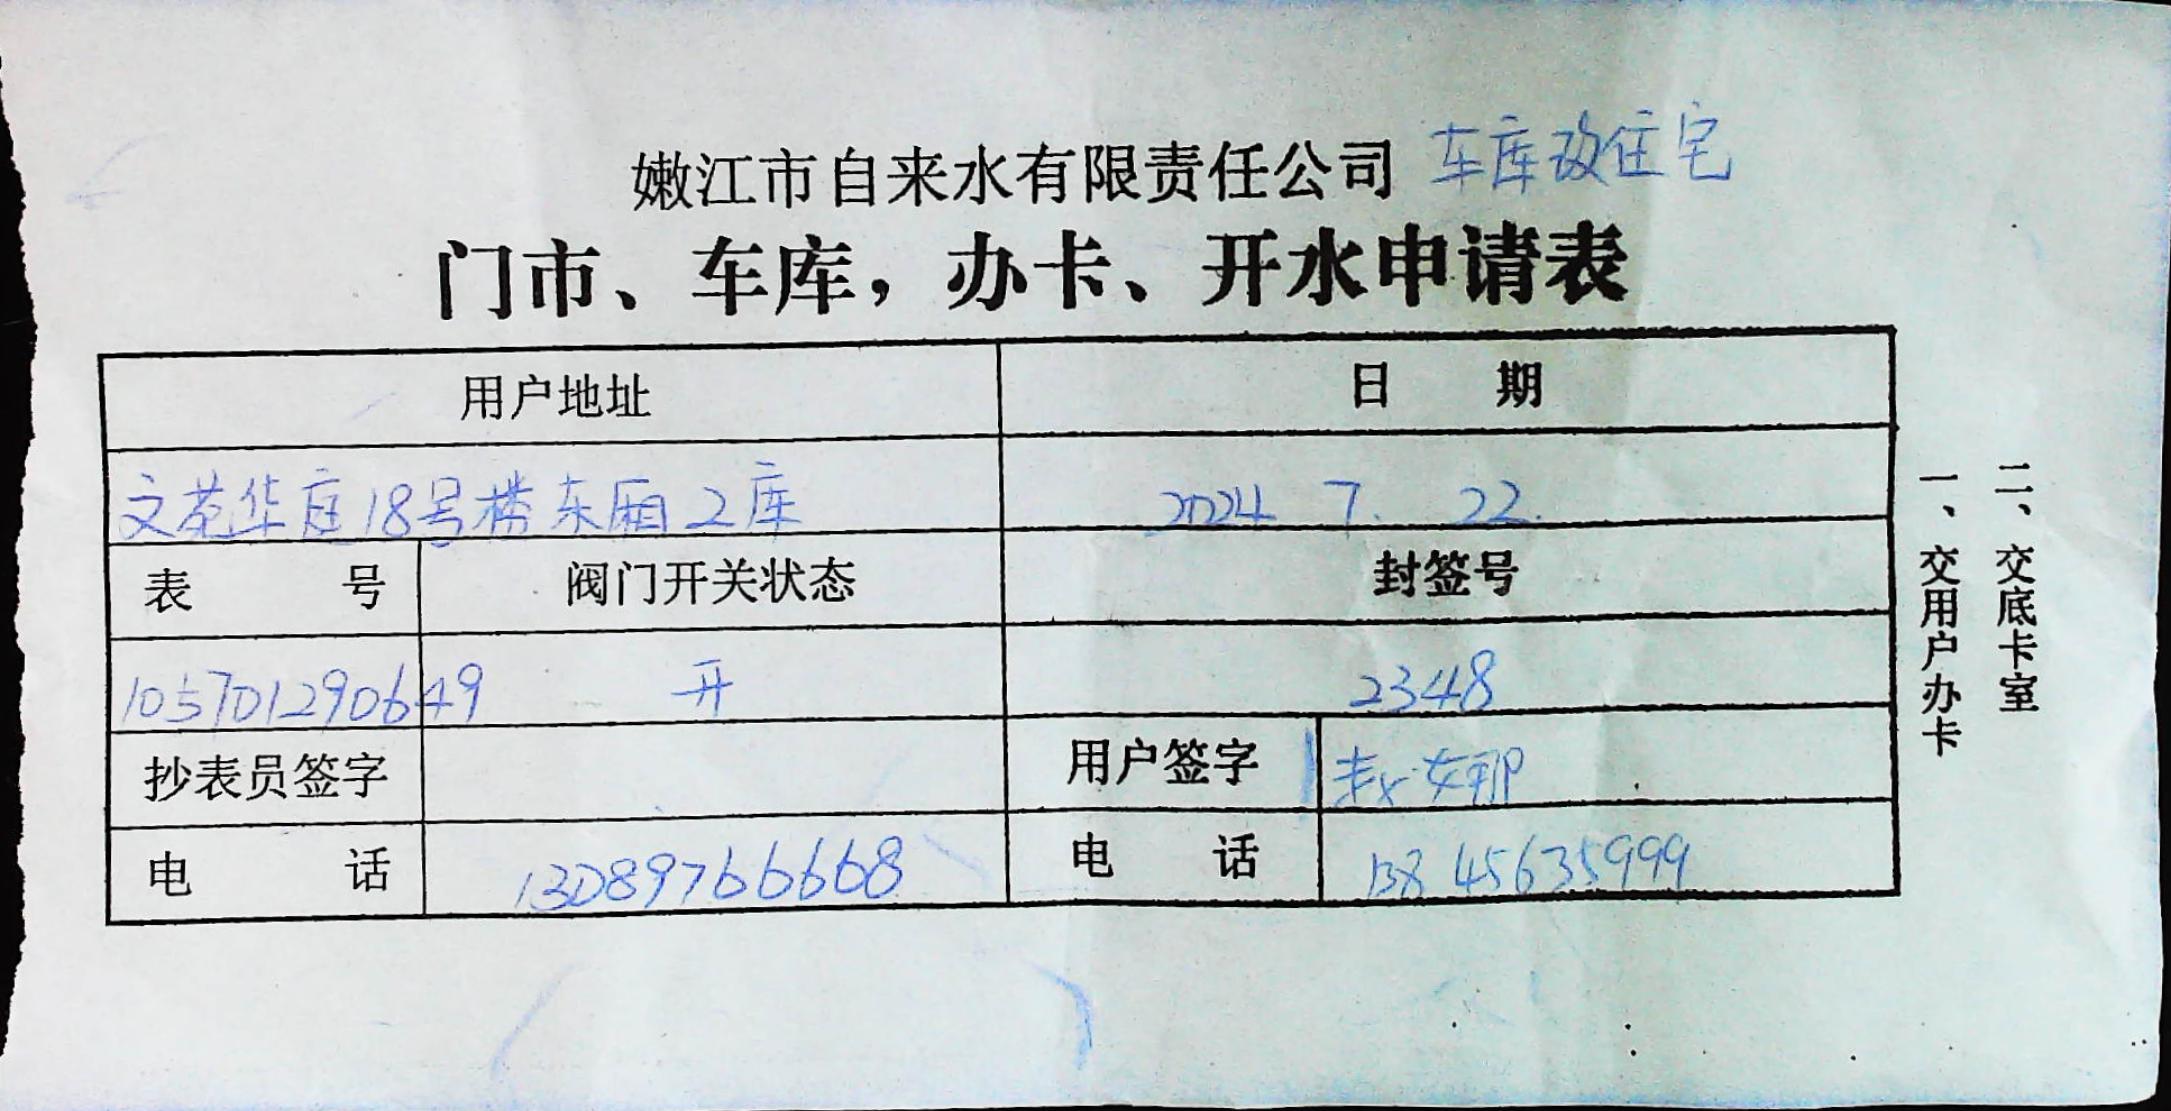 嫩江市自来水有限责任公司 车库改住宅
门市、车库，办卡、开水申请表
用户地址 日 期
文苑华庭18号楼东厢2库 2024 7. 22.
表 号 阀门开关状态 封签号
105701290649 开 2348
抄表员签字 用户签字 赵女那
电 话 13089766668 电 话 13845635999
一、交用户办卡
二、交底卡室